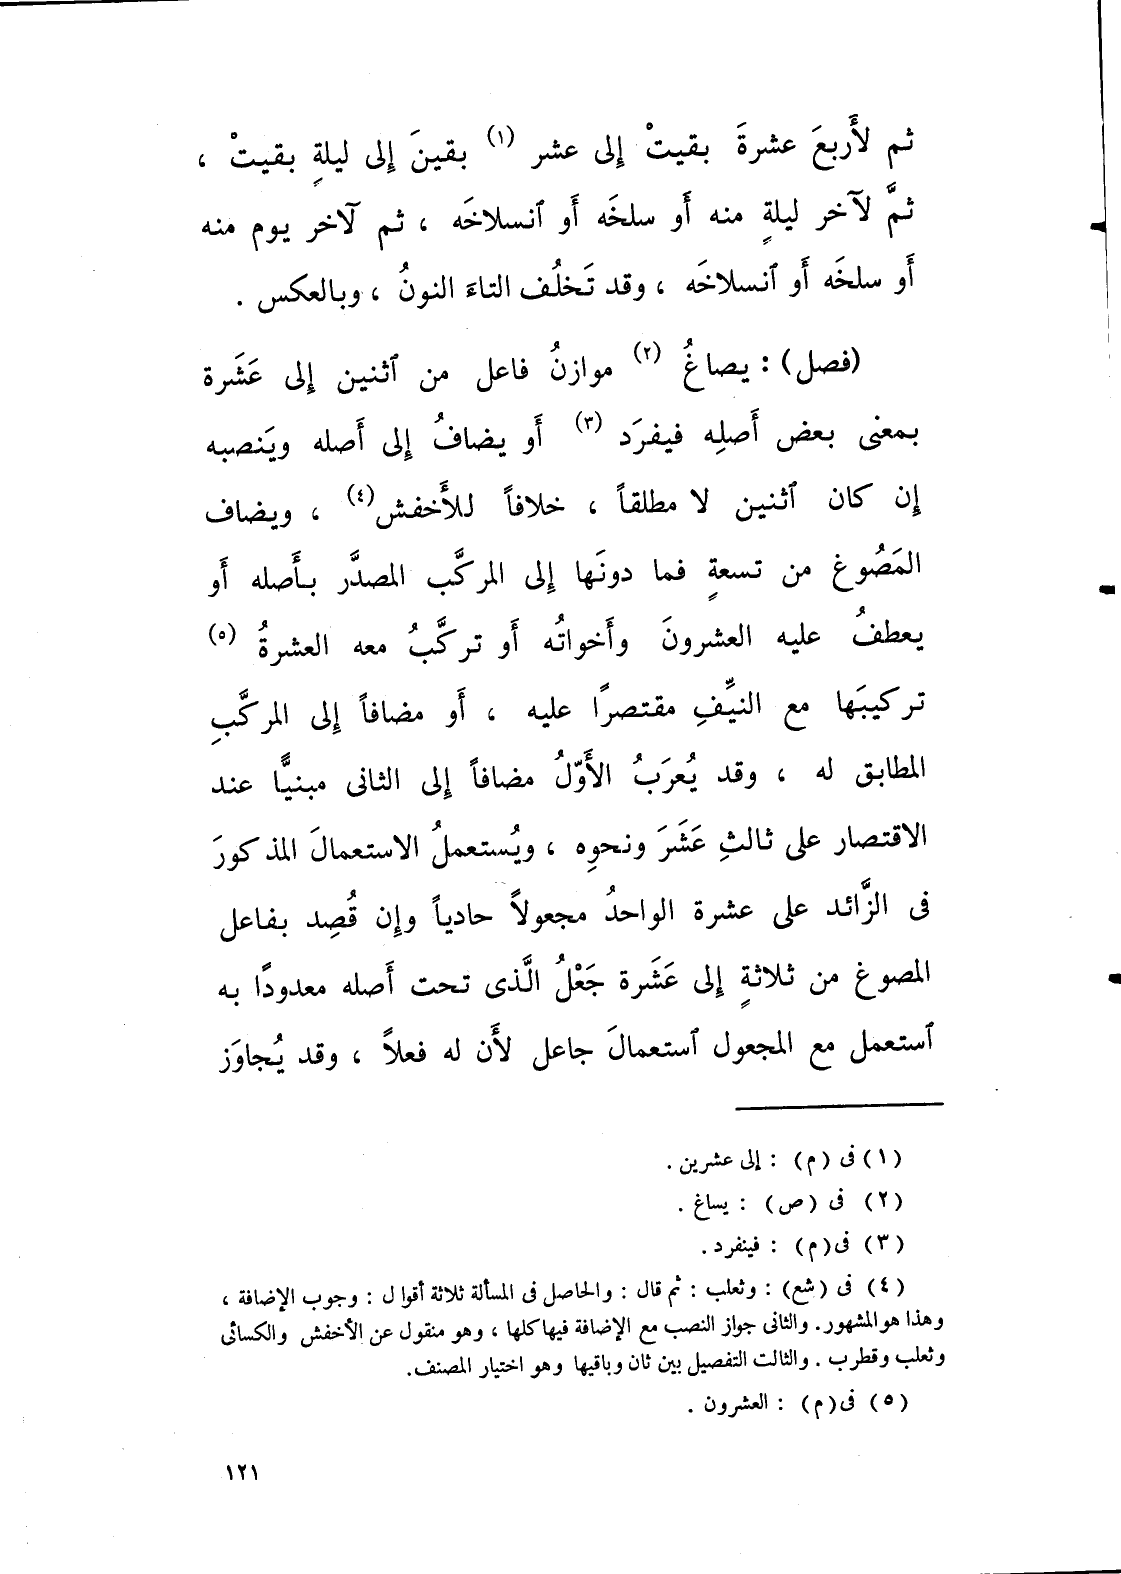 ثم لأَربعَ عشرةَ بقيتْ إلى عشر (١) بقينَ إلى ليلةٍ بقيتْ ،
ثمَّ لآخر ليلةٍ منه أَو سلخَه أَو ٱنسلاخَه ، ثم لآخر يوم منه
أَو سلخَه أَو ٱنسلاخَه ، وقد تَخلُف التاءَ النونُ ، وبالعكس .
(فصل) : يصاغُ (٢) موازنُ فاعل من ٱثنين إلى عَشَرة
بمعنى بعض أَصلِه فيفرَد (٣) أَو يضافُ إلى أَصله ويَنصبه
إن كان ٱثنين لا مطلقاً ، خلافاً للأَخفش (٤) ، ويضاف
المَصُوغ من تسعةٍ فما دونَها إلى المركَّب المصدَّر بأَصله أَو
يعطفُ عليه العشرونَ وأَخواتُه أَو تركَّبُ معه العشرةُ (٥)
تركيبَها مع النيِّفِ مقتصرًا عليه ، أَو مضافاً إلى المركَّبِ
المطابق له ، وقد يُعرَبُ الأَوّلُ مضافاً إلى الثانى مبنيًّا عند
الاقتصار على ثالثِ عَشَرَ ونحوِه ، ويُستعملُ الاستعمالَ المذكورَ
فى الزَّائد على عشرة الواحدُ مجعولاً حادياً وإن قُصِد بفاعل
المصوغ من ثلاثةٍ إلى عَشَرة جَعْلُ الَّذى تحت أَصله معدودًا به
ٱستعمل مع المجعول ٱستعمالَ جاعل لأَن له فعلاً ، وقد يُجاوَز
(١) فى (م) : إلى عشرين .
(٢) فى (ص) : يساغ .
(٣) فى (م) : فينفرد .
(٤) فى (شع) : وثعلب : ثم قال : والحاصل فى المسألة ثلاثة أقوال : وجوب الإضافة ،
وهذا هو المشهور . والثانى جواز النصب مع الإضافة فيها كلها ، وهو منقول عن الأخفش والكسائى
وثعلب وقطرب . والثالت التفصيل بين ثان وباقيها وهو اختيار المصنف .
(٥) فى (م) : العشرون .
١٢١